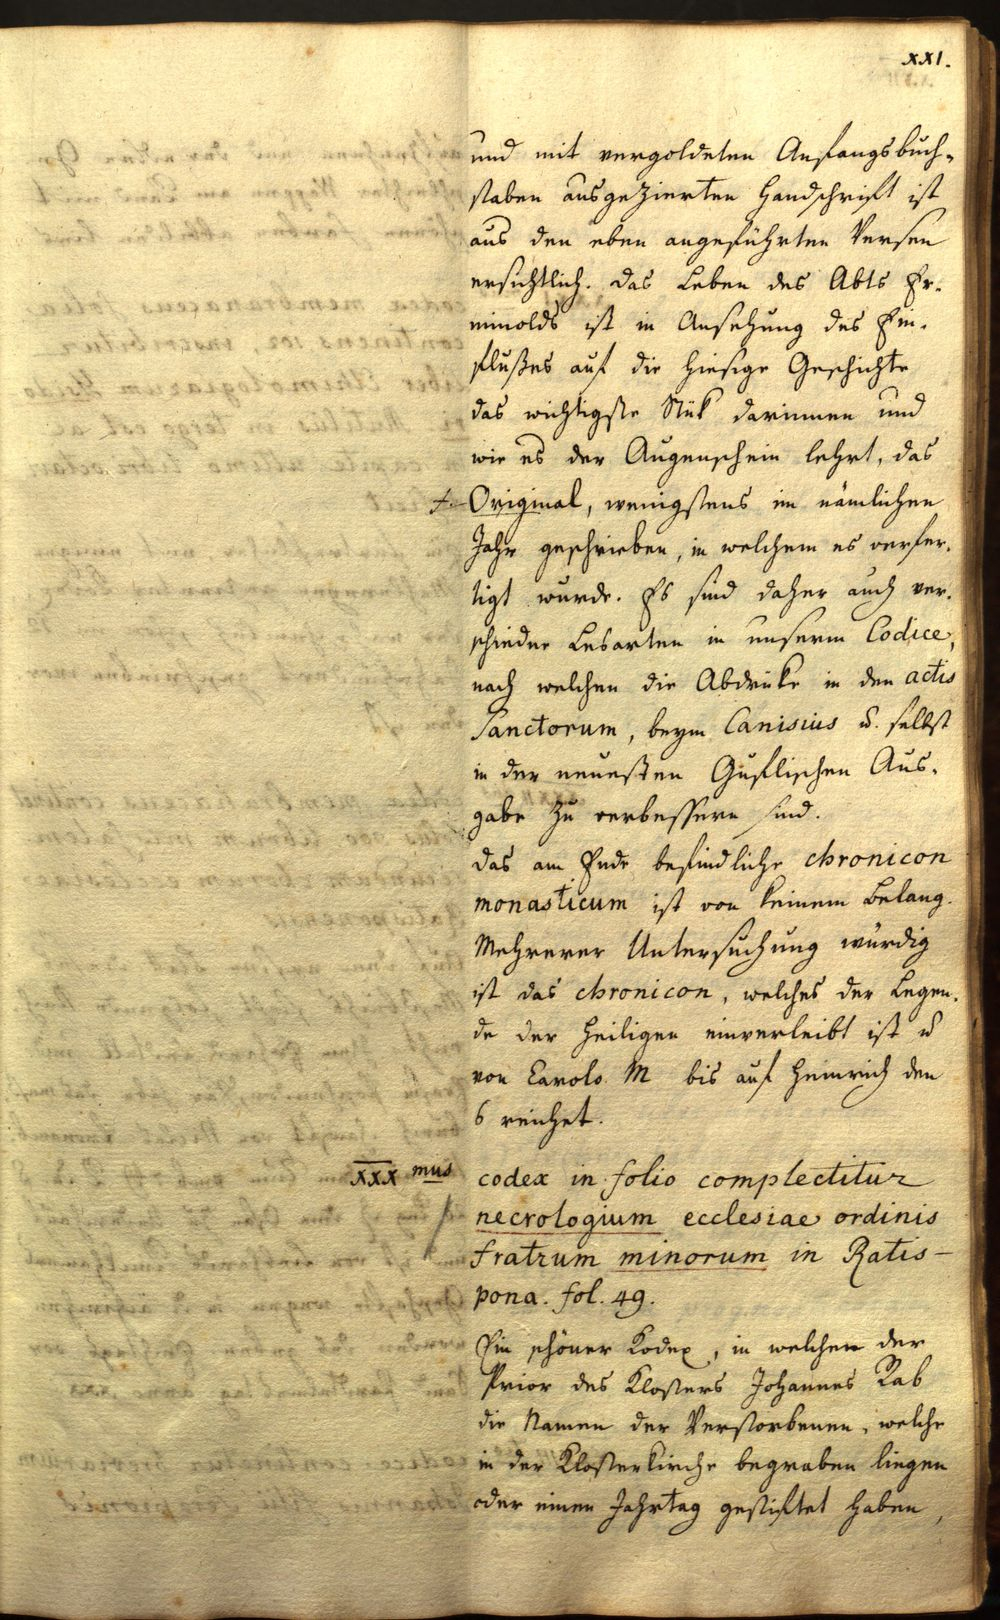 XXI.
und mit vergoldeten Anfangsbuch-
staben ausgezierten Handschrift ist
aus den eben angeführten Versen
ersichtlich. Das Leben des Abts Er-
minolds ist in Ansehung des Ein-
flußes auf die hiesige Geschichte
das wichtigste Stük darinnen und
wie es der Augenschein lehrt, das
Original, wenigstens im nämlichen
Jahr geschrieben, in welchem es verfer-
tigt wurde. Es sind daher auch ver-
schiedne Lesarten in unserm Codice,
nach welchen die Abdrüke in den actis
Sanctorum, beym Canisius u. selbst
in der neuesten Gußlischen Aus-
gabe zu verbessern sind.
Das am Ende befindliche chronicon
monasticum ist von keinem Belang.
Mehrerer Untersuchung würdig
ist das chronicon, welches der Legen-
de der Heiligen einverleibt ist u
von Carolo M bis auf Heinrich den
6 reichet.
XXX mus codex in folio complectitur
necrologium ecclesiae ordinis
fratrum minorum in Ratis-
pona. fol. 49.
Ein schöner Kodex, in welchen der
Prior des Klosters Johannes Rab
die Namen der Verstorbenen, welche
in der Klosterkirche begraben liegen
oder einen Jahrtag gestiftet haben,